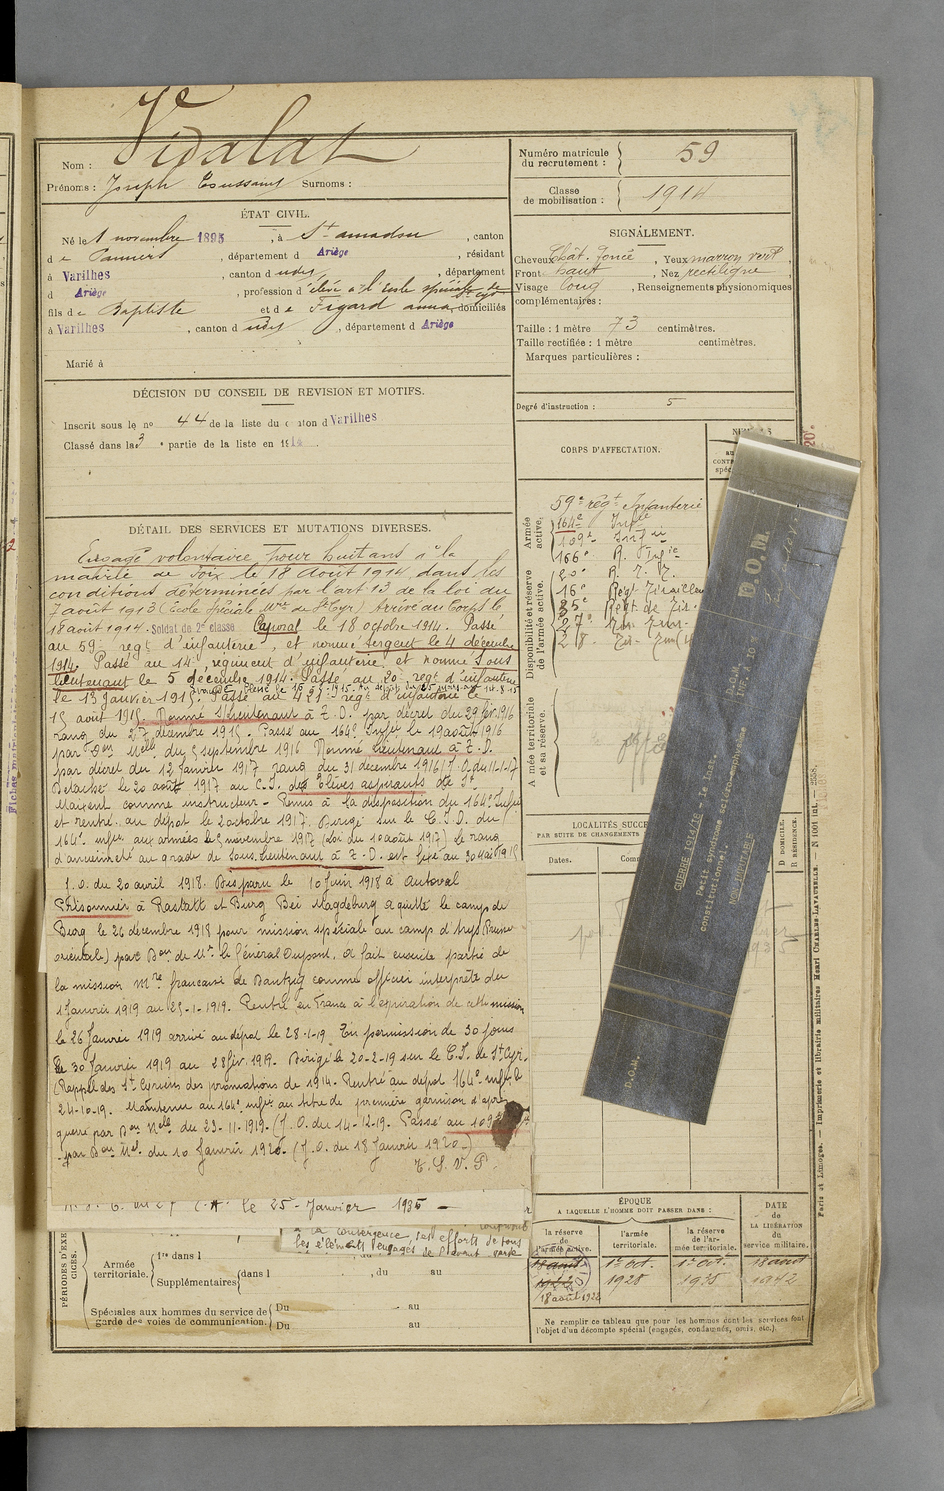 Vidalat
Nom :
Prénoms : Joseph Toussaint Surnoms :
Numéro matricule du recrutement : 59
Classe de mobilisation : 1914
ÉTAT CIVIL.
Né le 1 novembre 1895, à St amadou, canton
de Pamiers, département d Ariège, résidant
à Varilhes, canton d udes, département
d Ariège, profession d'élève à l'Ecole spéciale de St Cyr
fils de Baptiste et de Figard anna domiciliés
à Varilhes, canton d udes, département d Ariège
Marié à
SIGNALEMENT.
Cheveux chât. foncé, Yeux marron vert,
Front haut, Nez rectiligne
Visage long, Renseignements physionomiques
complémentaires :
Taille : 1 mètre 73 centimètres.
Taille rectifiée : 1 mètre centimètres.
Marques particulières :
Degré d'instruction : 5
DÉCISION DU CONSEIL DE REVISION ET MOTIFS.
Inscrit sous le no 44 de la liste du canton d Varilhes
Classé dans la 3e partie de la liste en 1914.
DÉTAIL DES SERVICES ET MUTATIONS DIVERSES.
Engagé volontaire pour huit ans à la
mairie de Foix le 18 Août 1914, dans les
conditions déterminées par l'art 13 de la loi du
7 août 1913 (Ecole spéciale Mre de St Cyr) Arrivé au Corps le
18 août 1914. Soldat de 2e classe Caporal le 18 octobre 1914. Passé
au 59e regt d'infanterie, et nommé sergent le 4 décembre
1914. Passé au 14e régiment d'infanterie et nommé Sous
lieutenant le 5 décembre 1914. Passé au 20e regt d'infanterie
le 13 janvier 1915.
Passé au regt d'infanterie le
15 août 1915. Nommé S/lieutenant à T.D. par décret du 29 fév. 1916
rang du 27 décembre 1915. Passé au 164e Infie le 19 août 1916
par Don Melle du 5 septembre 1916 Nommé Lieutenant à T.D.
par décret du 12 Janvier 1917 rang du 31 décembre 1916 J.O. du 11-1-17
Détaché le 20 août 1917 au C.I. des Elèves aspirants de St
Maixent comme instructeur - Remis à la disposition du 164e Infie
et rentré au dépôt le 2 octobre 1917. Dirigé sur le C.I.D. du
164e infie aux armées le 5 novembre 1917 (Loi du 10 août 1917) Le rang
d'ancienneté au grade de Sous-lieutenant à T.D. est fixé au 30 Mai 1915
J.O. du 20 avril 1918. Disparu le 10 Juin 1918 à Autoval
Prisonnier à Rastatt et Burg Bei Magdeburg a quitté le camp de
Burg le 26 décembre 1918 pour mission spéciale au camp d'Arys (Prusse
orientale) par Don de Mr le Général Dupont. A fait ensuite partie de
la mission Mre francaise de Dantzig comme officier interprète du
1 Janvier 1919 au 25-1-1919. Rentré en France à l'expiration de cette mission
le 26 Janvier 1919 arrivé au dépôt le 28-1-19 En permission de 30 jours
le 30 Janvier 1919 au 28 fév. 1919. Dirigé le 20-2-19 sur le C.I. de St Cyr.
(Rappel des St Cyriens des promotions de 1914. Rentré au dépôt 164e infie le
24-10-19. Maintenu au 164e infie au titre de première garnison d'après
guerre par Don Melle du 23-11-1919. (J.O. du 14-12-19. Passé au 109e
par Don Mel. du 10 Janvier 1920. (J.O. du 18 Janvier 1920.)
T.S.V.P.
le 25 Janvier 1935
la convergence des efforts de tous
les éléments engagés de
CORPS D'AFFECTATION.
Armée active.
59e régt Infanterie
164e Infie
109e Infie
166e R. Infie
Disponibilité et réserve de l'armée active.
20e R. T. N.
16e Régt Tirailleurs
35e Régt de Tir.
27e
28.
Armée territoriale et sa réserve.
LOCALITÉS SUCC
PAR SUITE DE CHANGEMENTS
Dates.
D DOMICILE.
R RÉSIDENCE.
D.O.M.
GUERRE 1914/18
Petit syndrome scléro-emphysème
constitutionnel.
NON IMPUTABLE
D.O.M.
D.O.M.
PÉRIODES D'EXERCICES.
Armée territoriale.
1re dans l
Supplémentaires dans l , du au
Spéciales aux hommes du service de garde des voies de communication.
Du au
Du au
ÉPOQUE
A LAQUELLE L'HOMME DOIT PASSER DANS :
la réserve de l'armée active.
l'armée territoriale.
la réserve de l'armée territoriale.
DATE de LA LIBÉRATION du service militaire.
18 août 1922
18 août 1922
1er oct. 1928
1er oct. 1935
18 août 1942
Ne remplir ce tableau que pour les hommes dont les services font
l'objet d'un décompte spécial (engagés, condamnés, omis, etc.).
Paris et Limoges. — Imprimerie et librairie militaires Henri CHARLES-LAVAUZELLE. — N 1001 int. —